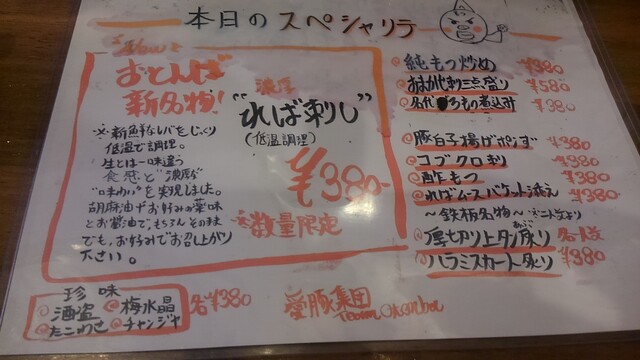 本日のスペシャリテ
New
おとんば
新名物!
濃厚
"ればー刺し"
(低温調理)
¥380-
※数量限定
※新鮮なレバをじっくり
低温で調理。
生とは一味違う
食感と"濃厚な
"味わい"を実現しました。
胡麻油やお好みの薬味
とお醤油で、もちろんそのまま
でも、お好みでお召し上がり
下さい。
純もつ炒め ¥380
おまかせ刺し三点盛り ¥580
名代 もの煮込み ¥380
豚白子揚げポン酢 ¥380
コブクロ刺し ¥380
酢もつ ¥380
ればームースバケット添え ¥380
~鉄板名物~
厚切り上タン炙り 各一人前
ハラミスカート炙り ¥380
珍味
酒盗 梅水晶
たこわさ チャンジャ
各¥380
愛豚集団
Team Otonba